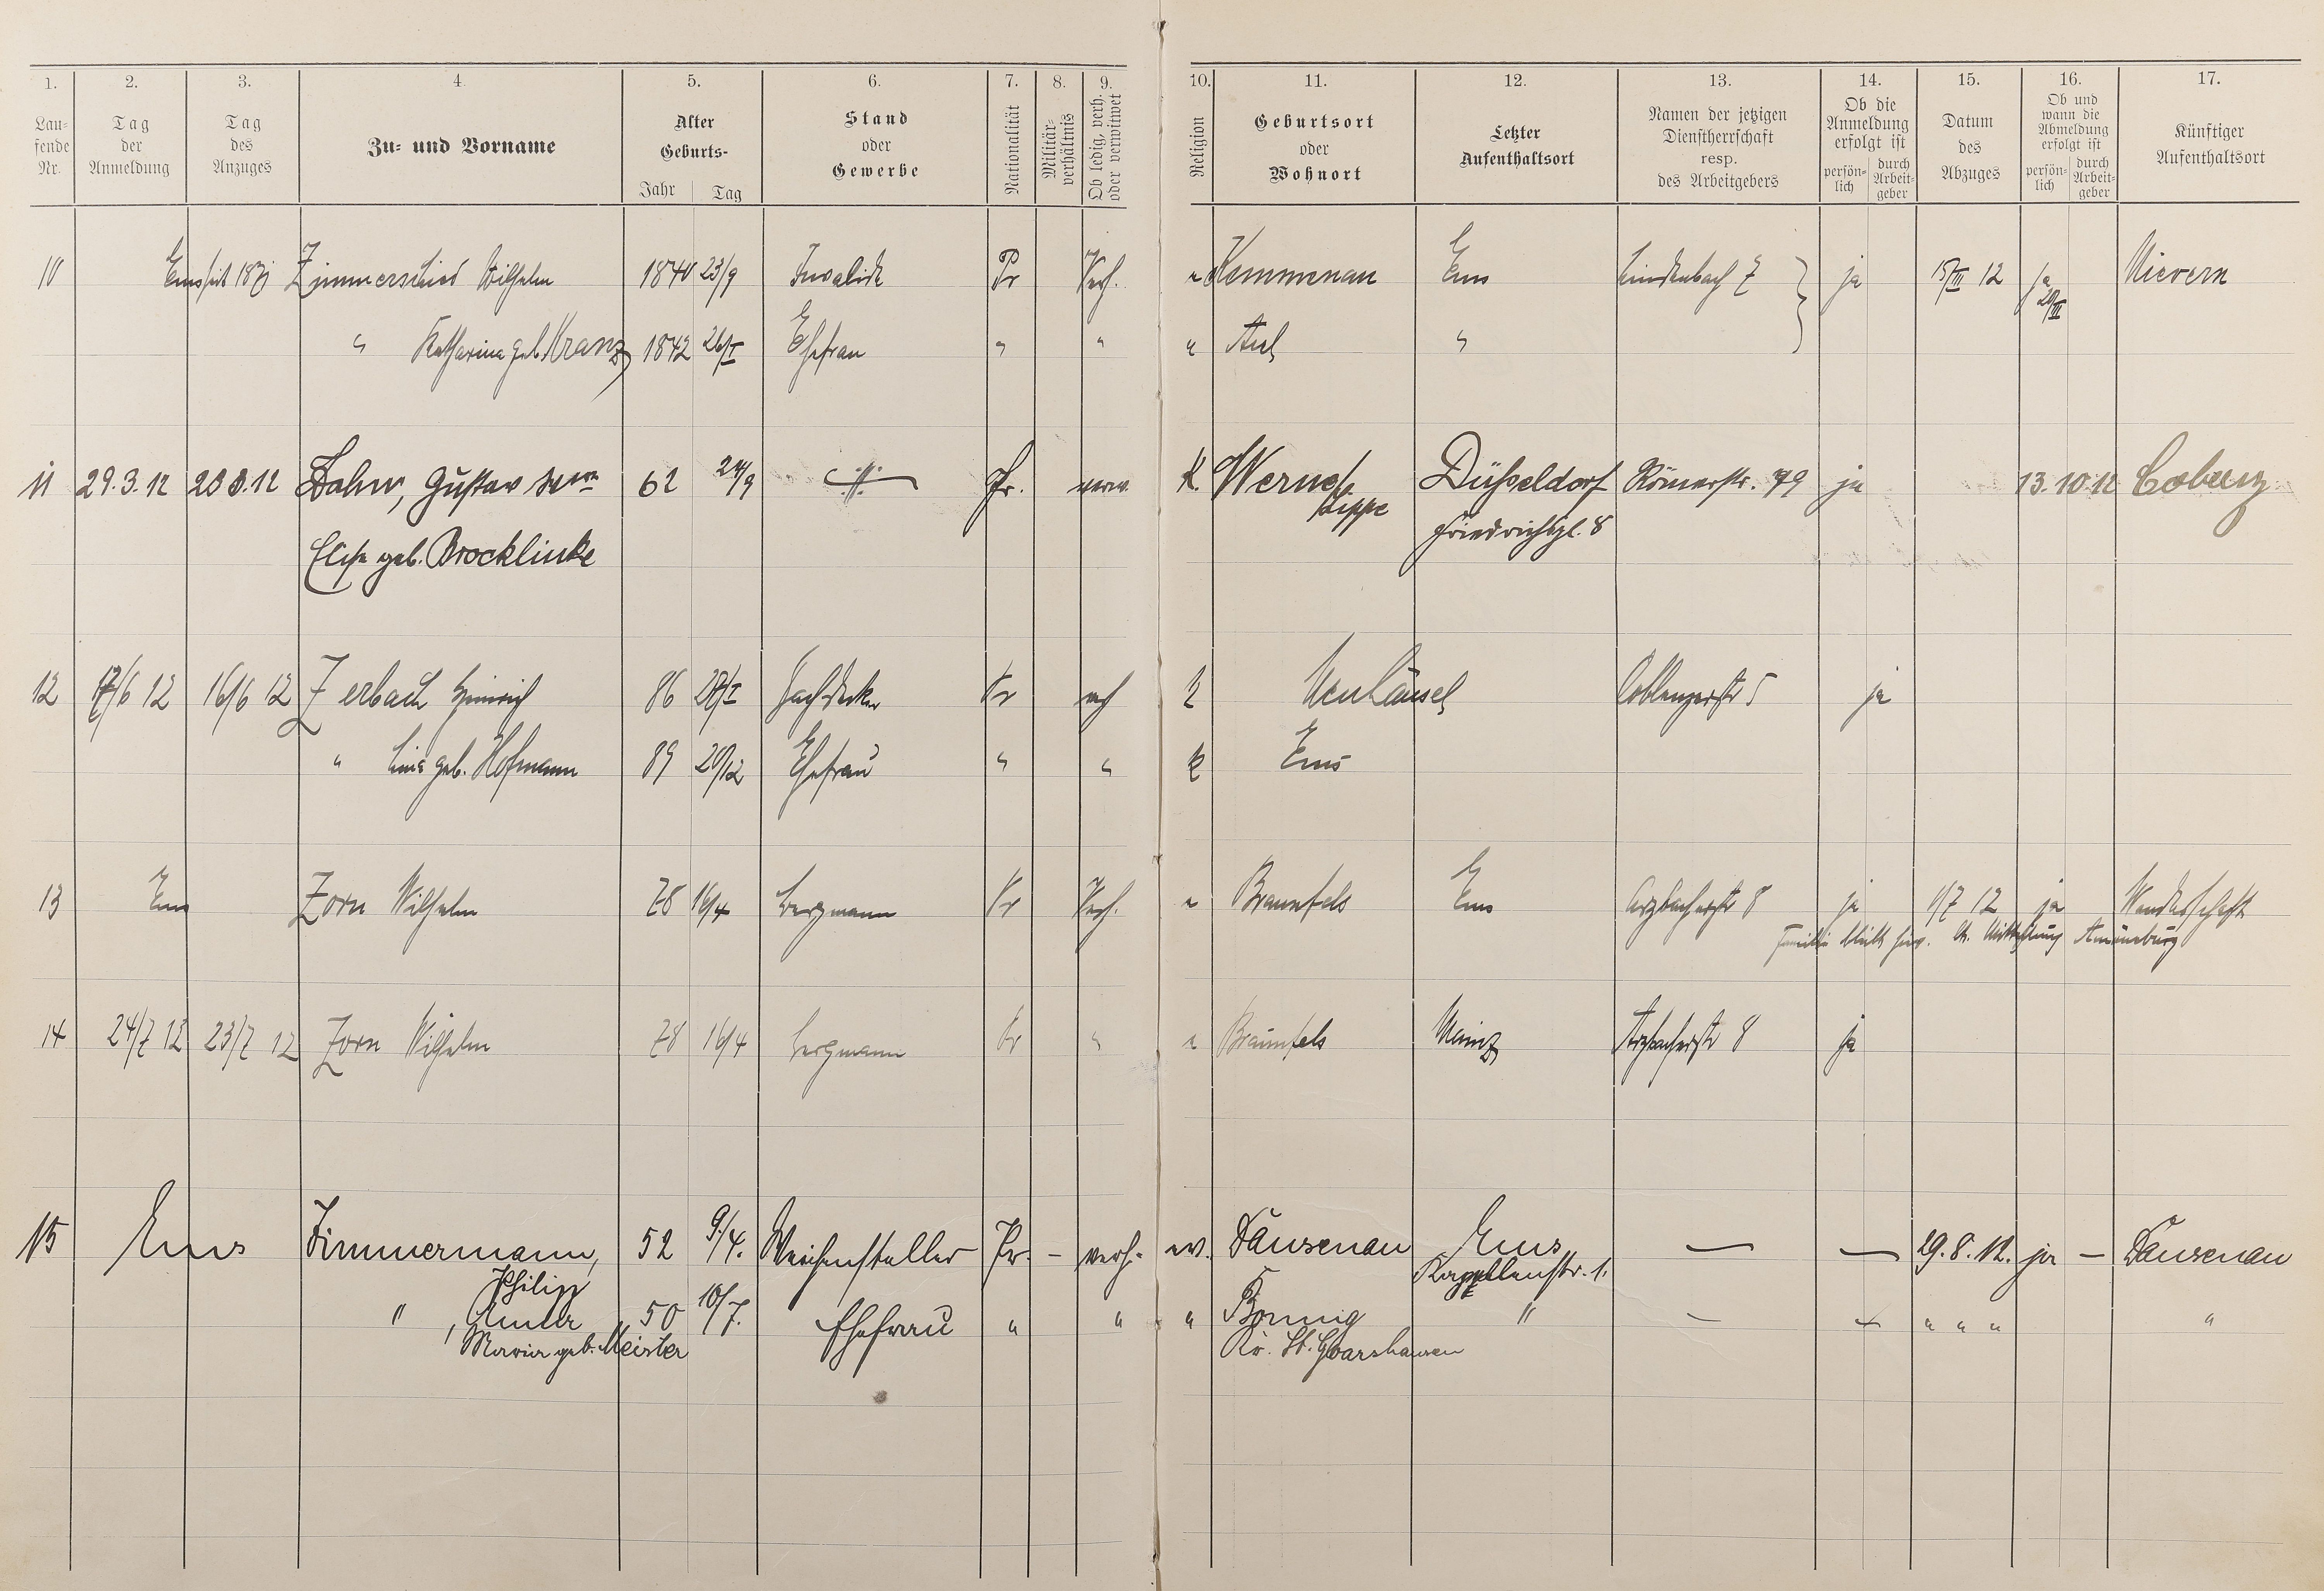 1. 2. 3. 4. 5. 6. 7. 8. 9. 10. 11. 12. 13. 14. 15. 16. 17.
Lau-
fende
Nr.
Tag
der
Anmeldung
Tag
des
Anzuges
Zu- und Vorname
Alter
Geburts-
Jahr Tag
Stand
oder
Gewerbe
Nationalität
Militär-
verhältnis
Ob ledig, verh.
oder verwitwet
Religion
Geburtsort
oder
Wohnort
Letzter
Aufenthaltsort
Namen der jetzigen
Dienstherrschaft
resp.
des Arbeitgebers
Ob die
Anmeldung
erfolgt ist
persön-
lich
durch
Arbeit-
geber
Datum
des
Abzuges
Ob und
wann die
Abmeldung
erfolgt ist
persön-
lich
durch
Arbeit-
geber
Künftiger
Aufenthaltsort
10 Ems seit Zimmerschied Wilhelm 1840 23/9 Invalide Pr Verh. " Kemmenau Ems Lindenbach 7 ja 15/III 12 ja Nievern
20/III
" Katharina geb. Kranz 1842 26/I Ehefrau " " " Aul "
11 29.3.12 28.3.12 Dahm, Gustav 62 24/9 Pr. verw. K. Werne/ Düsseldorf Römerstr. 79 ja 13.10.12 Coblenz
Lippe Friedrichspl. 8
Elise geb. Brocklinke
12 17/6 12 16/6 12 Zerbach Heinrich 86 Dachdecker Pr verh k Neuhäusel Coblenzerstr 5 ja
" Lina geb. Hofmann 89 20/12 Ehefrau " " k Ems
13 Ems Zorn Wilhelm 78 16/4 Bergmann Pr Verh. " Braunfels Ems Arzbacherstr 8 ja 1/7 12 ja Wanderschaft
Familie bleibt hier. Mitteilung
14 24/7 12 23/7 12 Zorn Wilhelm 78 16/4 Bergmann Pr " " Braunfels Mainz Arzbacherstr 8 ja
15 Ems Zimmermann, 52 9/4. Weichensteller Pr. – verh. ev. Dausenau Ems, — — 29.8.12. ja – Dausenau
Philipp Kapellenstr. 1.
" , Anna 50 10/7. Ehefrau " " " Bornig " – " " " "
Maria geb. Meister Kr. St. Goarshausen